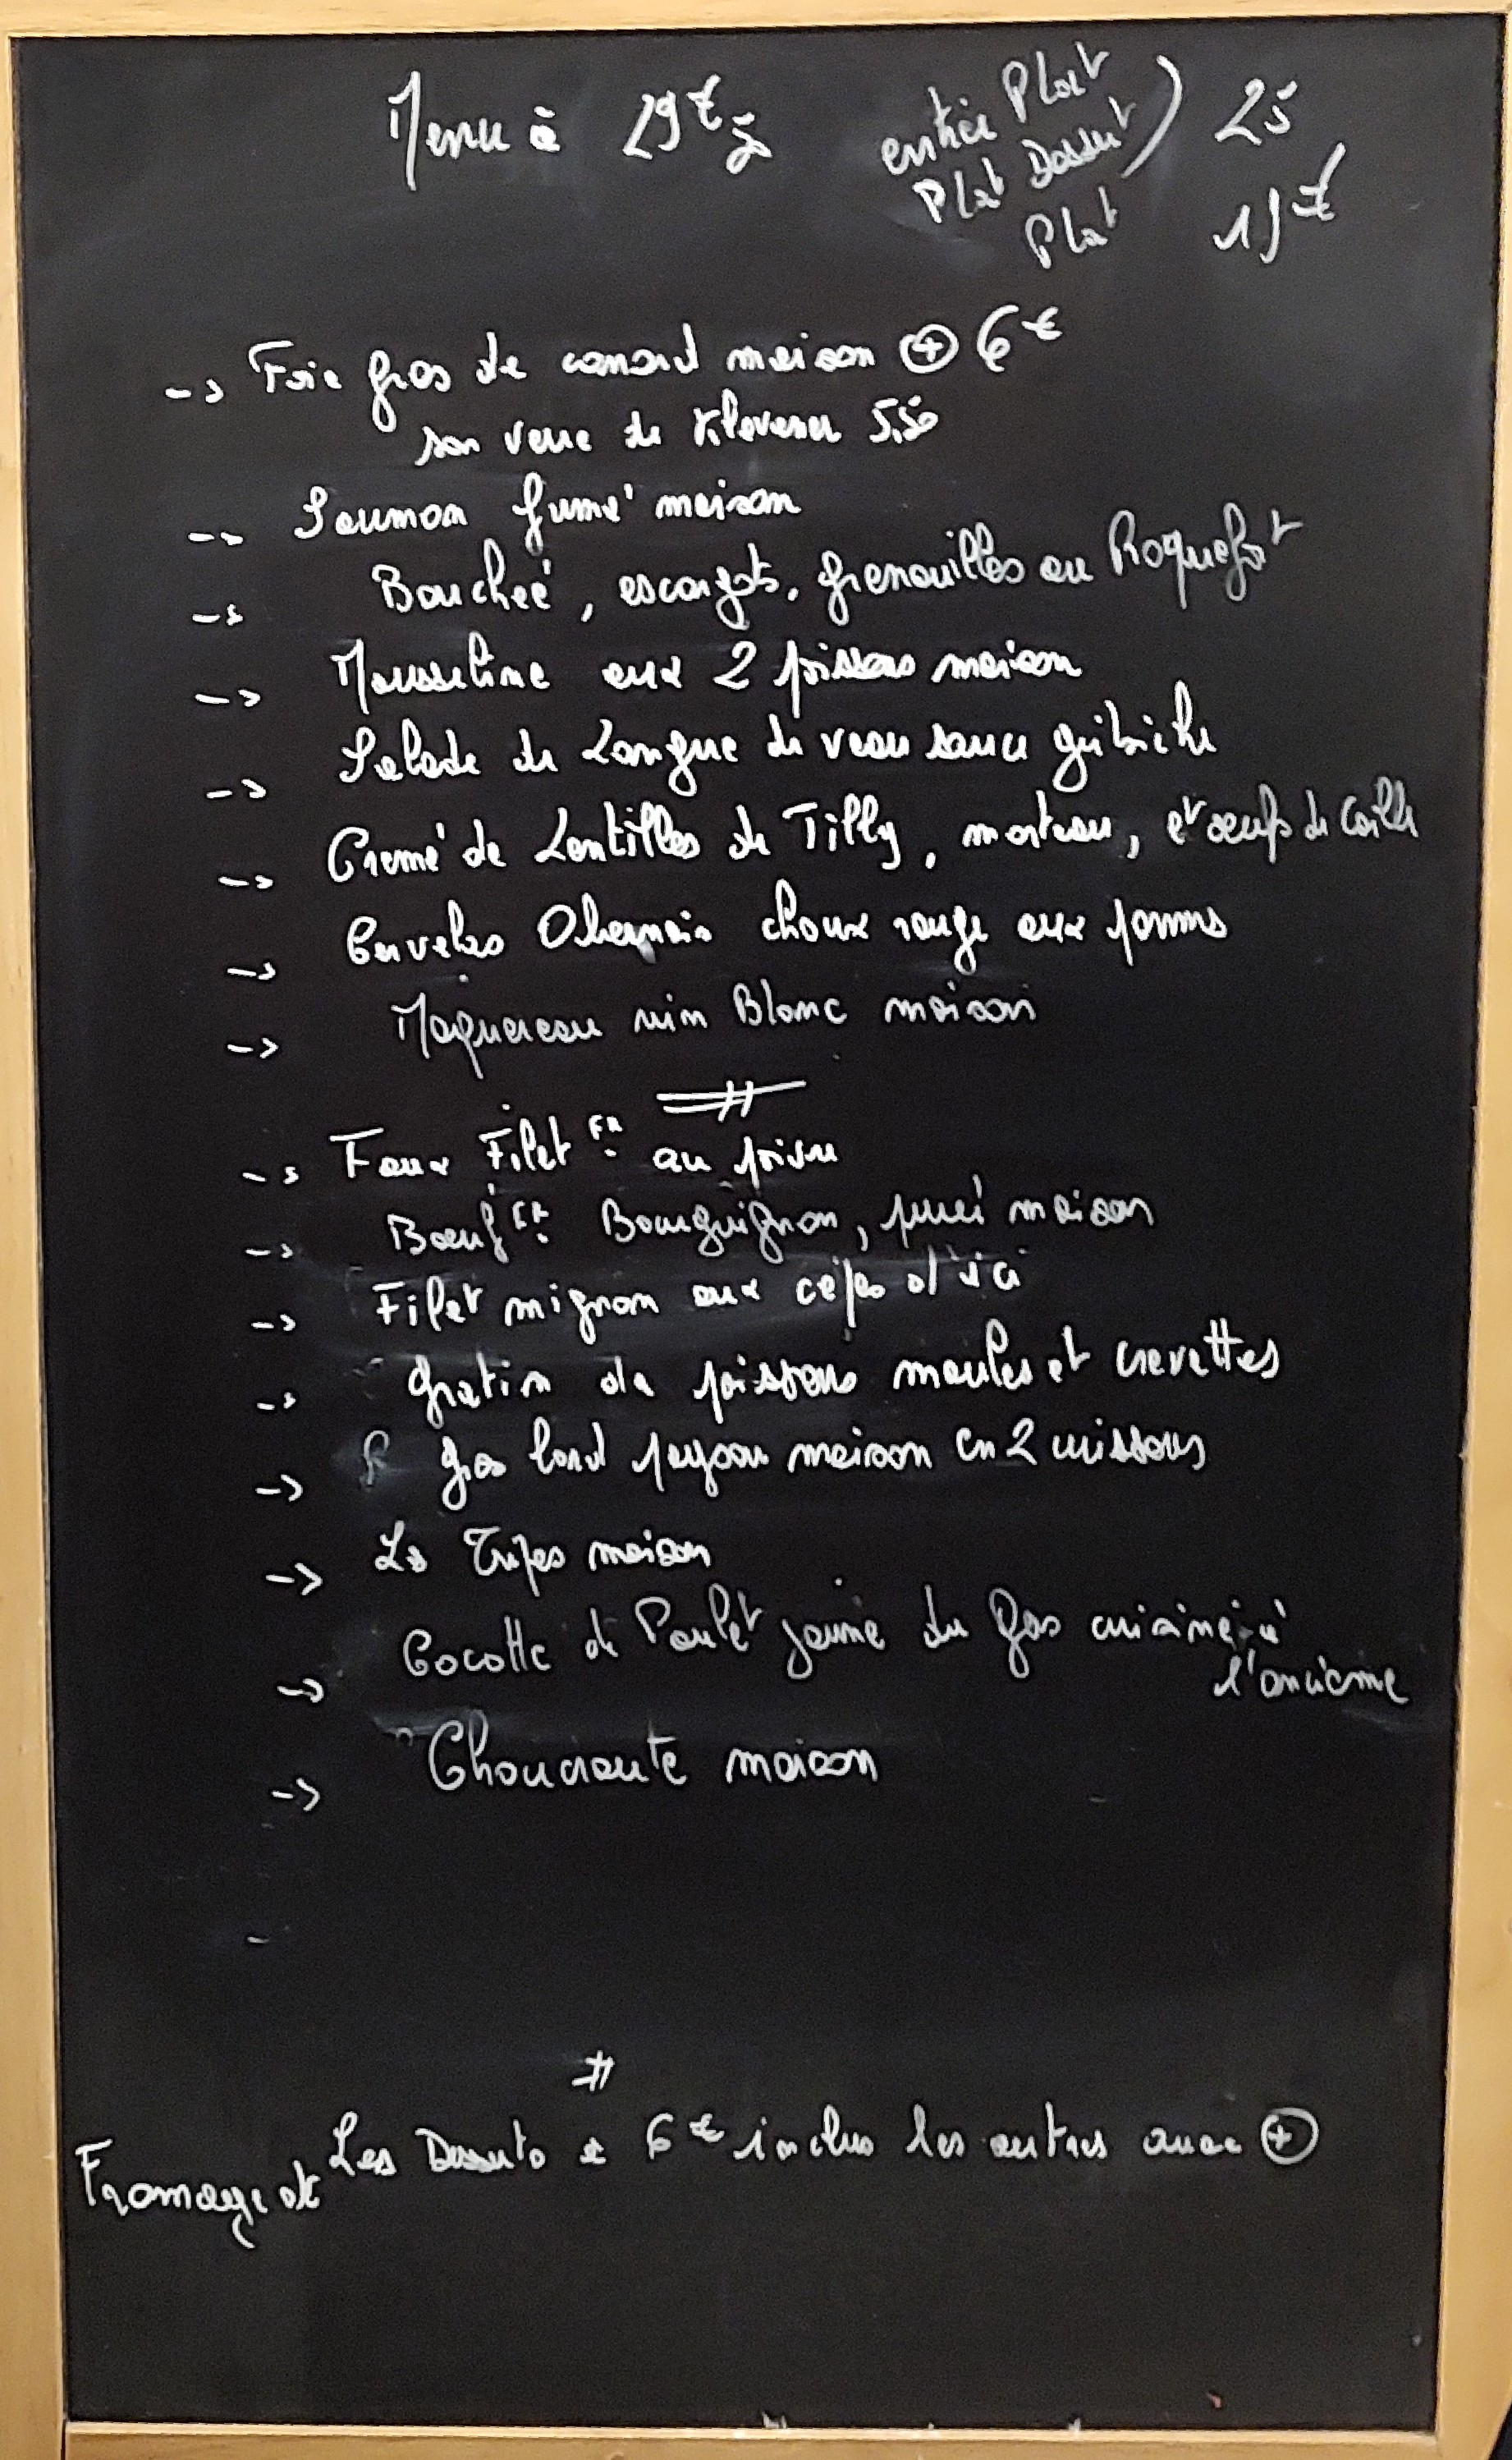 Menu à 29€
entrée Plat
Plat Dessert ) 25
Plat
-> Foie gras de canard maison ⊕ 6€
son verre de Klevener 5,50
-> Saumon fumé maison
-> Boucheé, escargots, grenouilles au Roquefort
-> Mousseline aux 2 poissons maison
-> Salade de Langue de veau sauce gribiche
-> Creme de Lentilles de Tilly, morteau, et oeufs de Caille
-> Cervelas Obernois choux rouge aux pommes
-> Maquereau vin Blanc maison
-> Faux Filet FR au poivre
-> Bœuf FR Bourguignon, pureé maison
-> Filet mignon aux cèpes d'ici
-> gratin de poissons moules et crevettes
-> gros lard paysan maison en 2 cuissons
-> Les Tripes maison
-> Cocotte de Poulet jaune du Gas cuisiné à
l'ancienne
-> Choucroute maison
Fromage et Les Desserts à 6€ inclus les autres avec ⊕